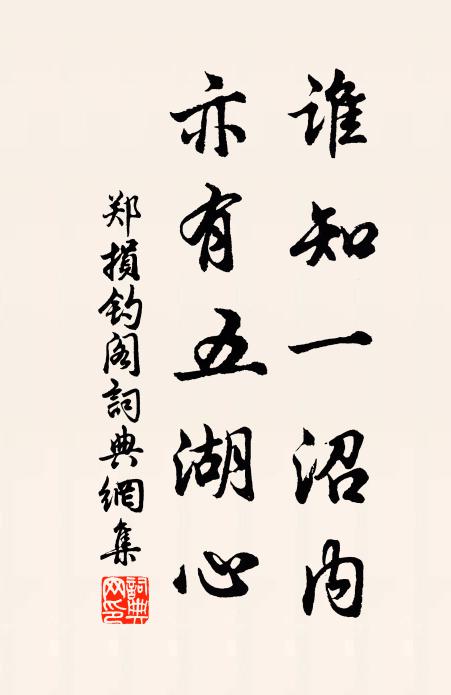 谁知一沼内
亦有五湖心
郑損钓阁詞典網集
詞典网印